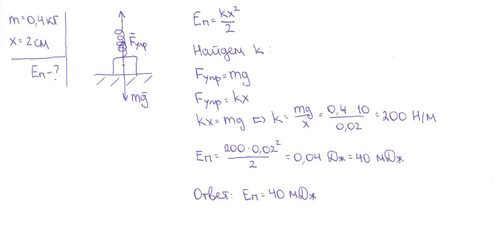 m=0,4кг
x=2см
Eп-?
F̄упр
mḡ
Eп=kx²/2
Найдем k:
Fупр=mg
Fупр=kx
kx=mg ⇔ k=mg/x=0,4·10/0,02=200 Н/м
Eп=200·0,02²/2=0,04 Дж=40 мДж
Ответ: Eп=40 мДж